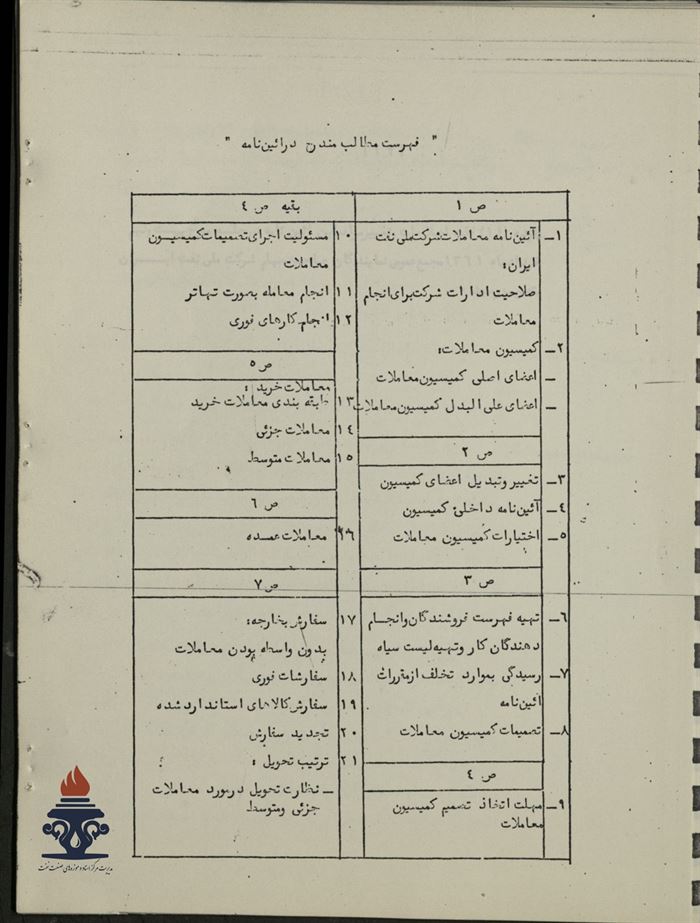 " فهرست مطالب مندرج درآئین‌نامه "
ص ۱
۱ـ آئین‌نامه معاملات شرکت ملی نفت
ایران:
صلاحیت ادارات شرکت برای انجام
معاملات
۲ـ کمیسیون معاملات:
ـ اعضای اصلی کمیسیون معاملات
ـ اعضای علی البدل کمیسیون معاملات
ص ۲
۳ـ تغییر وتبدیل اعضای کمیسیون
۴ـ آئین‌نامه داخلی کمیسیون
۵ـ اختیارات کمیسیون معاملات
ص ۳
۶ـ تهیه فهرست فروشندگان وانجام
دهندگان کار وتهیه لیست سیاه
۷ـ رسیدگی بموارد تخلف ازمقررات
آئین‌نامه
۸ـ تصمیمات کمیسیون معاملات
ص ٤
۹ـ مهلت اتخاذ تصمیم کمیسیون
معاملات
بقیه ص ٤
۱۰ مسئولیت اجرای تصمیمات کمیسیون
معاملات
۱۱ انجام معامله بصورت تهاتر
۱۲ انجام کارهای فوری
ص ۵
معاملات خرید :
۱۳ طبقه بندی معاملات خرید
۱٤ معاملات جزئی
۱۵ معاملات متوسط
ص ٦
۱٦ معاملات عمده
ص ۷
۱۷ سفارش بخارجه:
بدون واسطه بودن معاملات
۱۸ سفارشات فوری
۱۹ سفارش کالاهای استاندارد شده
۲۰ تجدید سفارش
۲۱ ترتیب تحویل :
ـ نظارت تحویل درمورد معاملات
جزئی ومتوسط
مدیریت مرکز اسناد و موزه‌های صنعت نفت